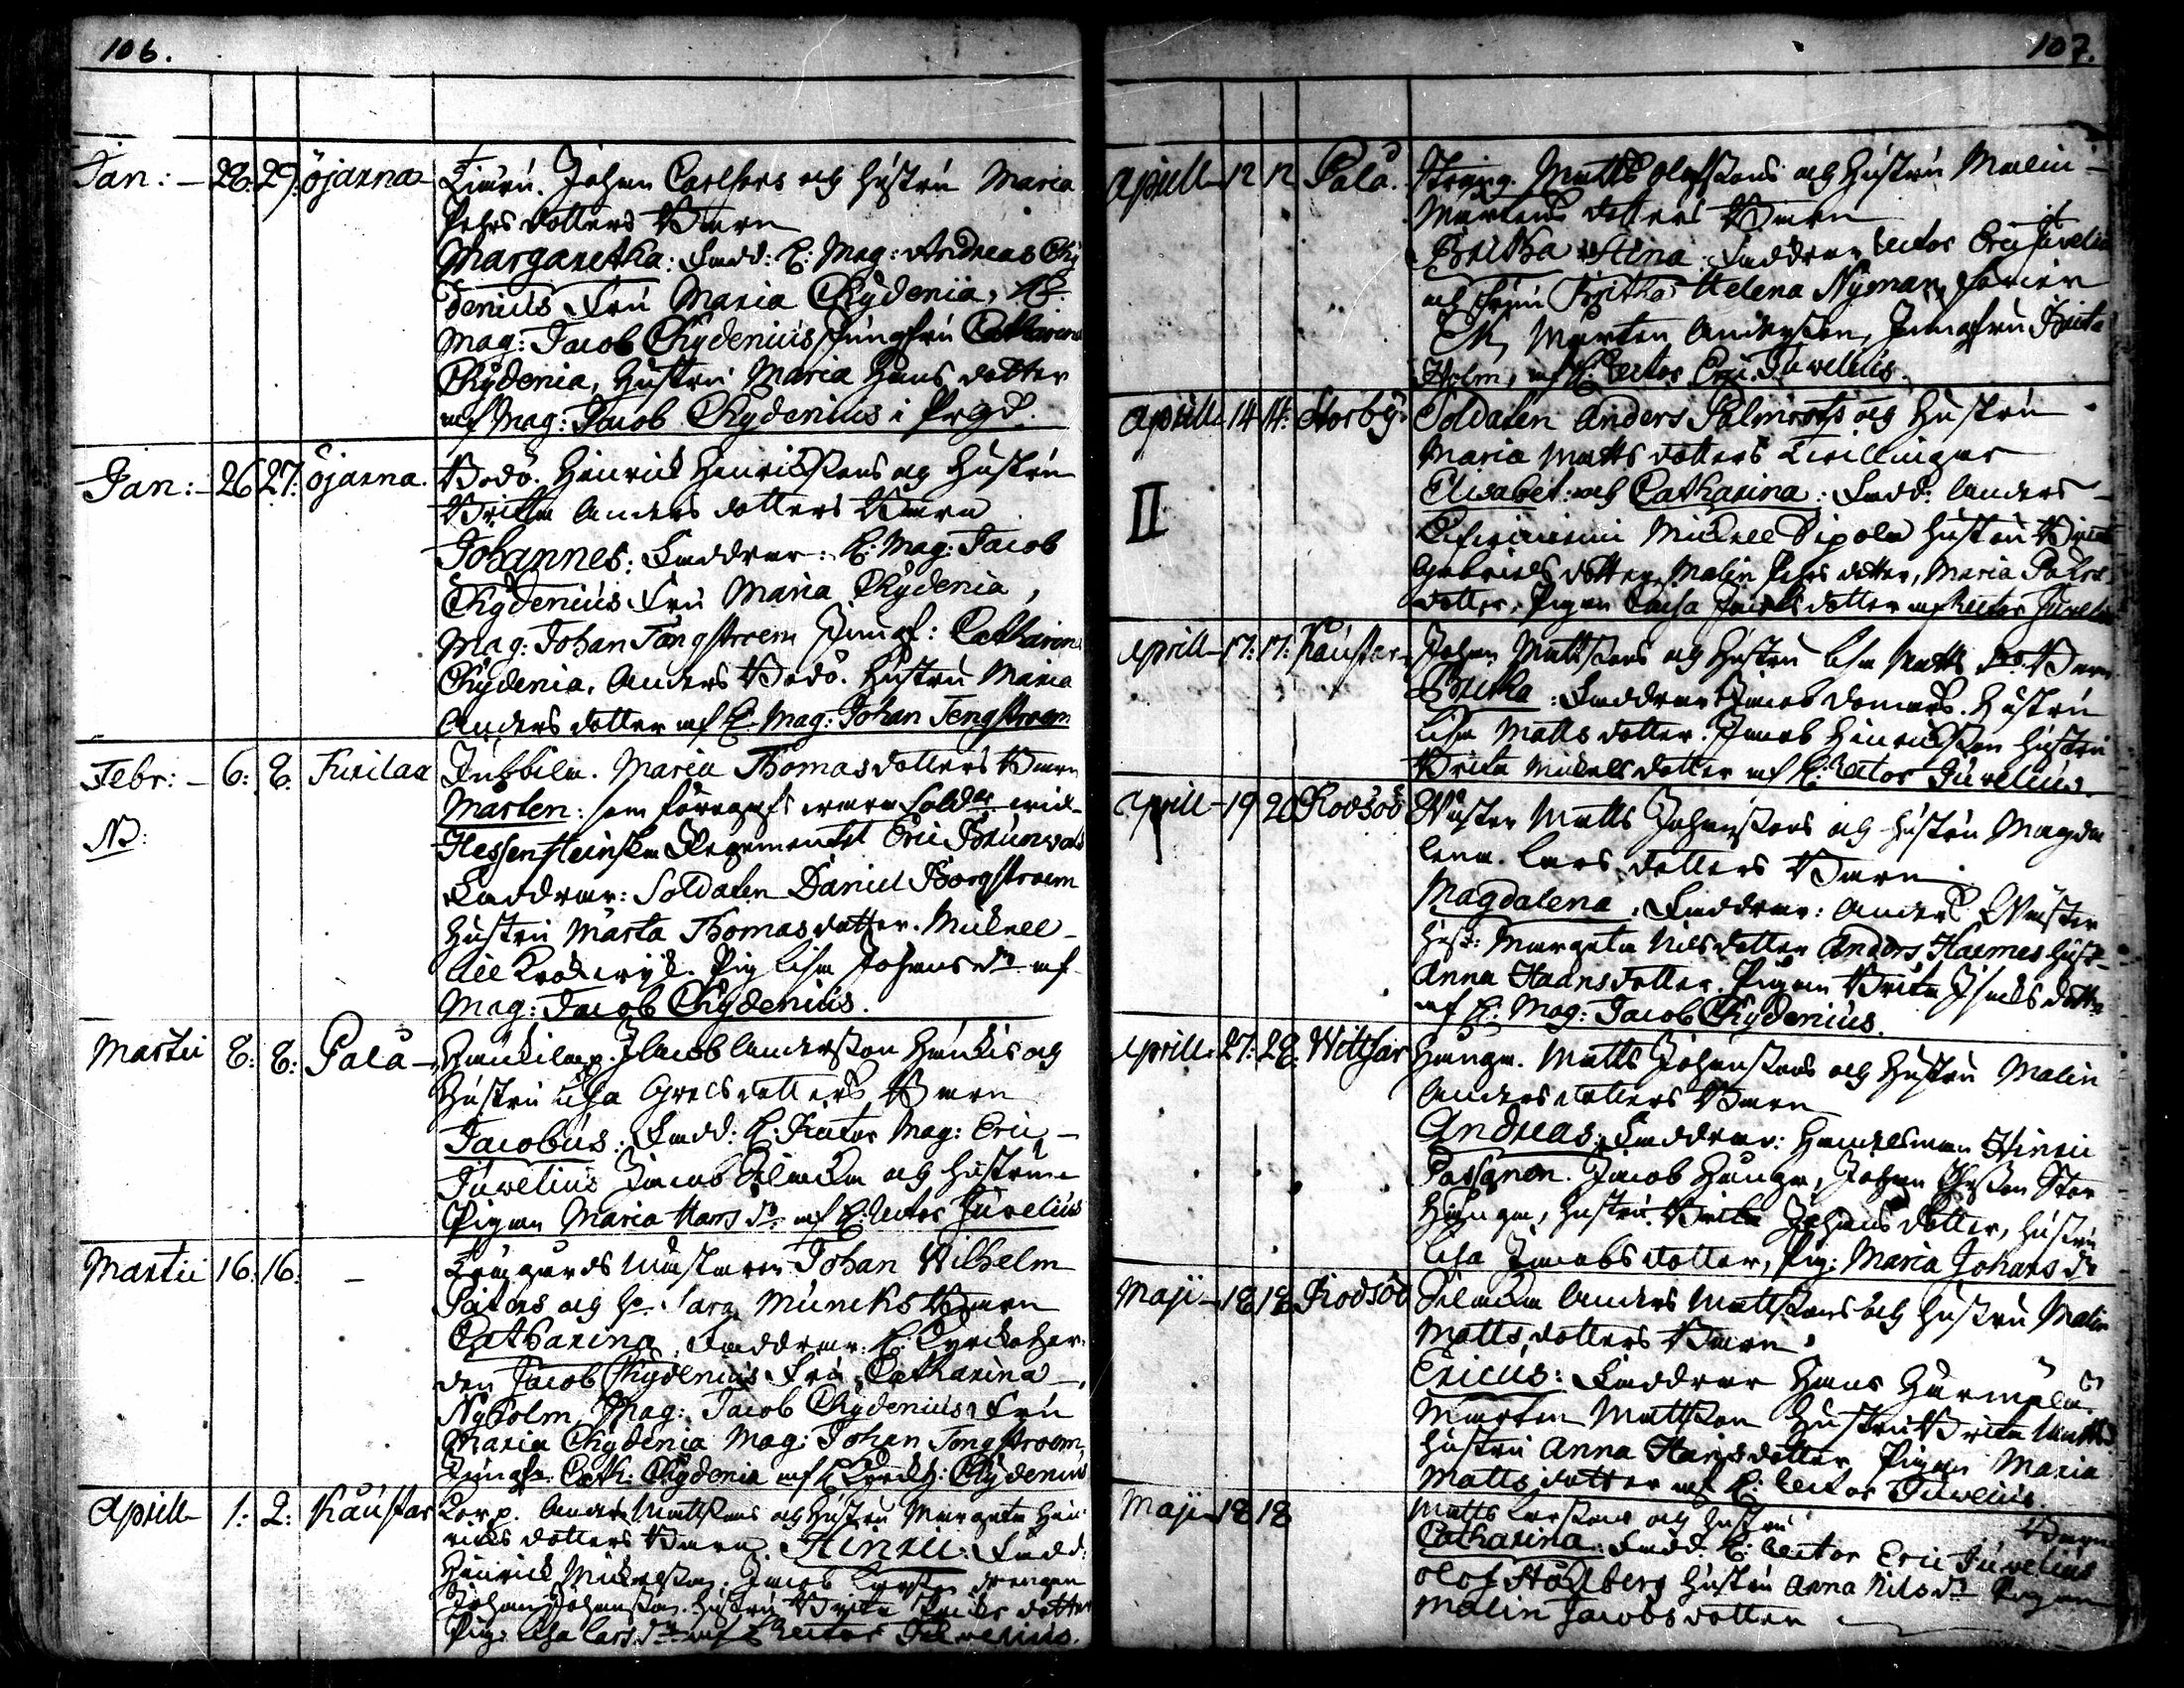 106.
Jan: - 28. 29. Öjanna
Johan Carlssons och Hustru Maria
Pehrs dotters Barn
Margaretha: Fadd: H: Mag: Andreas Chy
denius Fru Maria Chydenia, H:
Mag: Jacob Chydenius Jungfru Catharina
Chydenia, Hustru Maria Hans dotter
af Mag: Jacob Chydenius i
Jan: - 26 27: Öjanna.
Bodö. Hinrick Henrickssons og Hustru
Britha Anders dotters Barn
Johannes: Faddrar: H: Mag: Jacob
Chydenius Fru Maria Chydenia,
Mag: Johan Tengstroem Jungf: Catharina
Chydenia, Anders Bodö. Hustru Maria
Anders dotter af H. Mag: Johan Tengstroem
Febr: - 6: 8. Furilax
NB:
Maria Thomasdotters Barn
Marten: som föregifs wara Sold: wid
Hessensteinska Regementet Eric Brunwald
Faddrar: Soldaten Daniel Borgstroem
Hustru Marta Thomasdotter. Mickell
Pig Lisa Johans dr af
Mag: Jacob Chydenius.
Martii 8: 8: Palå
Jacob Andersson og
Hustru Lisa Grels dotters Barn
Jacobus: Fadd: H. Rector Mag: Eric
Juvelius Jacob og Hustrun
Pigan Maria Hans dr af H: Rector Juvelius
Martii 16. 16. -
Johan Wilhelm
og Sara Muncks Barn
Catharina, Faddrar: H. Kyrckoher
den Jacob Chydenius Fru Catharina
Nyholm, Mag: Jacob Chydenius, Fru
Maria Chydenia Mag: Johan Tengstroem,
Jungfr: Cath: Chydenia af H Kyrckh: Chydenius
Aprill 1: 2: Kaustar
Corp. Anders Mattssons og Hustru Margeta Hen
ricks dotters Barn Hinric: Fadd:
Henrick Mickelsson, Jacob drengen
Johan Johansson. Hustru Brita dotter
Pig: Lisa Lars dr af H Rector Juvelius.
107.
Aprill 12 12 Palå.
Matts Olofssons og Hustru Malin
Martens dotters Barn
Britha Stina: Faddrar Rector Eric Juvelius
og Fruu Britha Helena Nyman,
Ek, Marten Andersson, Jungfru Brita
Holm, af H: Rector Eric Juvelius.
Aprill 14 14: Storby.
II
Soldaten Anders Palmroos og Hustru
Maria Matts dotters Twillingar
Elisabet: och Catharina: Fadd: Anders
Mickell Sipola Hustru Brita
Gabriels dotter, Malin Pehrs dotter, Maria Pehrs
dotter, Pigan Caisa dotter af Rector Juvelius
Aprill 17: 17: Kaustar
Johan Mattssons og Hustru Lisa Matts dr. Barn
Britha: Faddrar Jacob Domars. Hustru
Lisa Matts dotter. Jacob Henricksson Hustru
Brita Mickels dotter af H. Rector Juvelius.
Aprill 19 20 Rödsöö
Wäster Matts Johanssons og Hustru Magda
lena Lars dotters Barn
Magdalena: Faddrar: Anders Wäster
Hust: Margeta Nils dotter Anders Hust
Anna Haansdotter, Pigan Brita dotter
af H: Mag: Jacob Chydenius.
Aprill. 27. 28. Witsar
Hanga. Matts Johanssons og Hustru Malin
Andersdotters Barn
Andreas: Faddrar: Hinric
Passanen. Jacob Hanga, Johan Stor
Hanga, Hustru Brita Johans dotter, Hustru
Lisa Jacobsdotter, Pig: Maria Johans dr
Maji 18 18 Rödsöö
Anders Mattssons och Hustru Malin
Matts dotters Barn
Ericus: Faddrar Hans
Marten Mattsson Hustru Brita Matts
Hustru Anna Hansdotter Pigan Maria
Matts dotter af H: Rector Juvelius.
Maji 18 18
Matts Larssons og Hustru
Barn
Catharina: Fadd: H: Rector Eric Juvelius
Olof Stohlberg Hustru Anna Nils dr Pigan
Malin Jacobs dotter